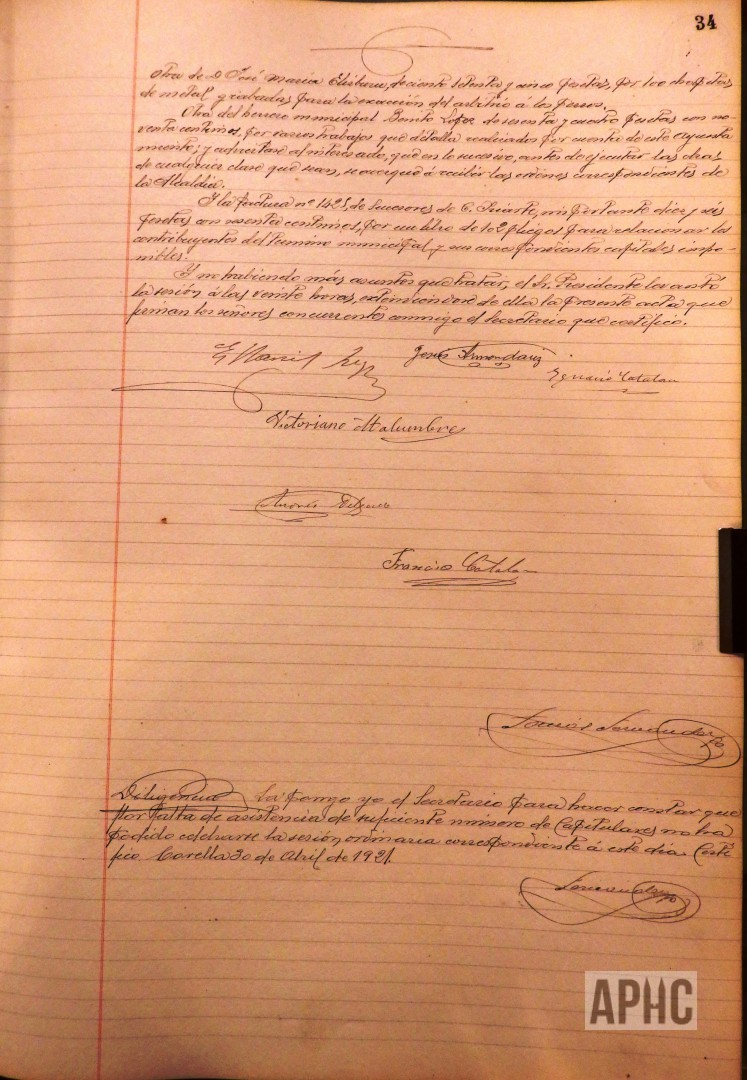 34
Otra de D. José María, de ciento setenta y cinco pesetas, por 100 chapitas
de metal grabadas para la exacción del arbitrio á los perros.
Otra del herrero municipal Benito López de sesenta y cuatro pesetas con no-
venta céntimos, por varios trabajos que detalla realizados por cuenta de este Ayunta
miento; y advirtase al interesado, que en lo sucesivo, antes de ejecutar las obras
de cualquier clase que sean, se acerque á recibir las órdenes correspondientes de
la Alcaldía.
Y la factura nº 1425, de Sucesores de C. Iriarte, importante diez y seis
pesetas con noventa céntimos, por un libro de 102 pliegos para relacionar los
contribuyentes del termino municipal y sus correspondientes capitales impo-
nibles.
Y no habiendo más asuntos que tratar, el Sr. Presidente levantó
la sesión á las veinte horas, extendiéndose de ella la presente acta que
firman los señores concurrentes conmigo el Secretario que certifico.
Jesús Armendariz
Ignacio Catalan
Victoriano Malumbre
Andrés
Francisco Catalan
Diligencia La pongo yo el Secretario para hacer constar que
por falta de asistencia de suficiente número de Capitulares no ha
podido celebrarse la sesión ordinaria correspondiente á este día. Certi
fico. Corella 30 de Abril de 1921.
APHC